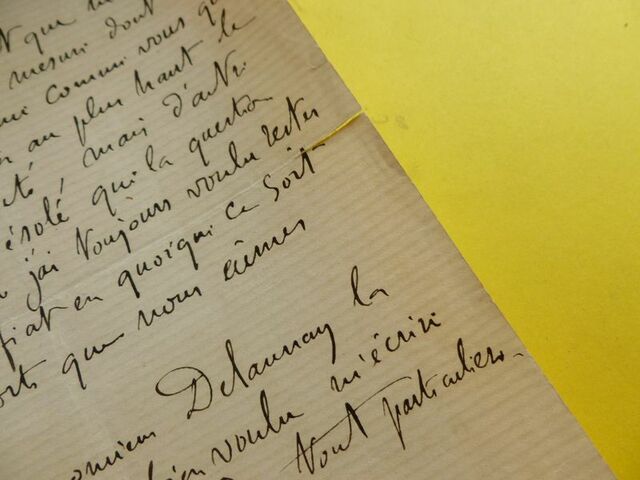 que
mesure dont
comme vous
au plus haut le
té, mais d'autre
ésolé qui la question
j'ai toujours voulu rester
fiat en quoique ce soit
orts que nous eûmes
omieur Delaunay la
bien voulu m'écrire
tout particuliers.